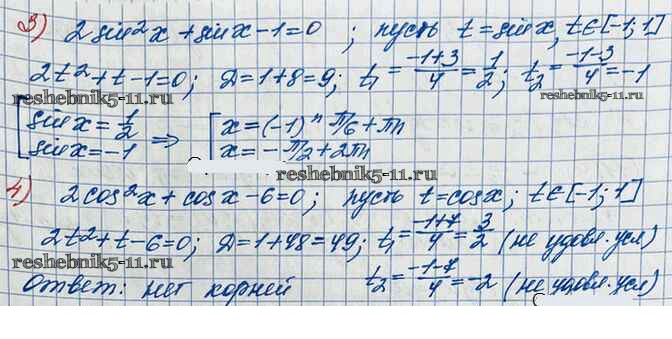 3) 2 sin²x + sin x - 1 = 0 ; пусть t = sin x, t ∈ [-1; 1]
2t² + t - 1 = 0; Д = 1 + 8 = 9; t₁ = (-1+3)/4 = 1/2; t₂ = (-1-3)/4 = -1
reshebnik5-11.ru reshebnik5-11.ru
[ sin x = 1/2 ⇒ [ x = (-1)ⁿ π/6 + πn
sin x = -1 x = -π/2 + 2πn
reshebnik5-11.ru
4) 2cos²x + cos x - 6 = 0; пусть t = cos x; t ∈ [-1; 1]
2t² + t - 6 = 0; Д = 1 + 48 = 49; t₁ = (-1+7)/4 = 3/2 (не удовл. усл)
reshebnik5-11.ru reshebnik5-11.ru
Ответ: нет корней t₂ = (-1-7)/4 = -2 (не удовл. усл)